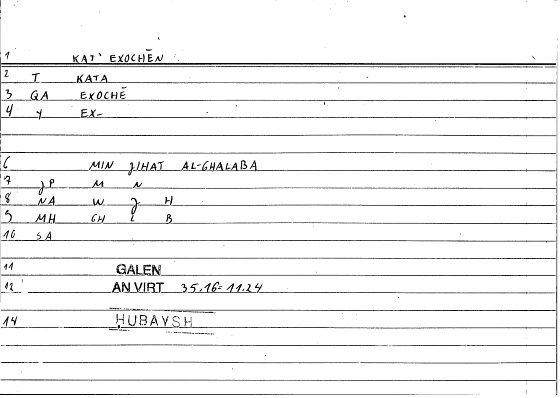 1 KAT' EXOCHĒN
2 T KATA
3 QA EXOCHĒ
4 Y EX-
6 MIN JIHAT AL-GHALABA
7 JP M N
8 NA W J H
9 MH GH L B
10 SA
11 GALEN
12 AN VIRT 35.16 = 11.24
14 ḤUBAYSH